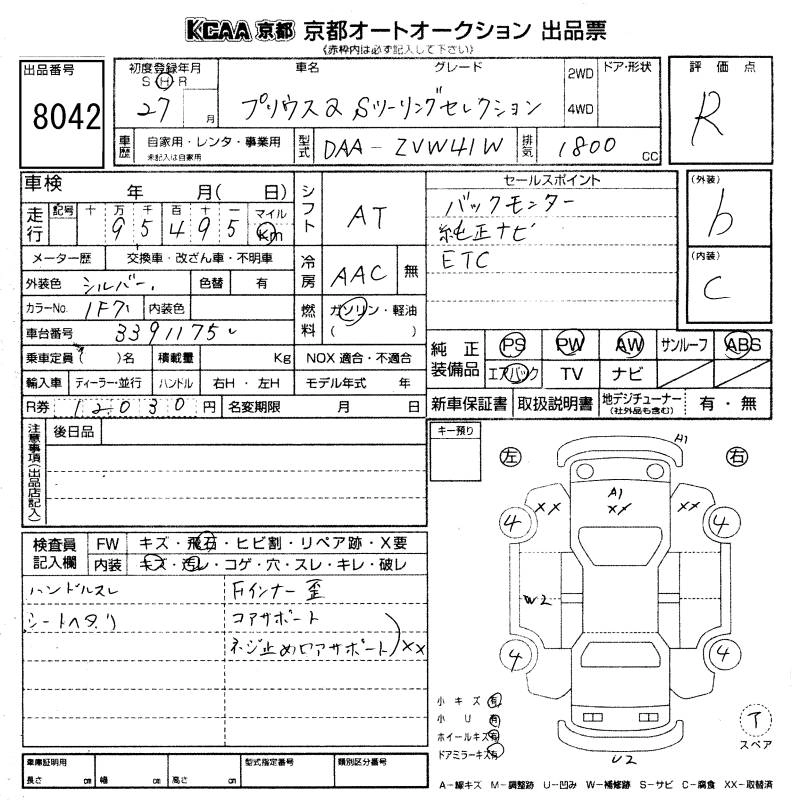 KCAA 京都 京都オートオークション 出品票
《赤枠内は必ず記入して下さい》
出品番号
8042
初度登録年月
S H R
27 月
車名 グレード
プリウスα Sツーリングセレクション
2WD
4WD
ドア・形状
評価点
R
車歴
自家用・レンタ・事業用
未記入は自家用
型式
DAA-ZVW41W
排気
1800 CC
車検 年 月( 日)
走行
記号 十 万 千 百 十 一 マイル
9 5 4 9 5 km
メーター歴 交換車・改ざん車・不明車
外装色 シルバー 色替 有
カラーNo. 1F7 内装色
車台番号 3391175
乗車定員 ( )名 積載量 Kg NOX 適合・不適合
輸入車 ディーラー・並行 ハンドル 右H・左H モデル年式 年
R券 12030 円 名変期限 月 日
シフト AT
冷房 AAC 無
燃料 ガソリン・軽油
( )
セールスポイント
バックモンター
純正ナビ
ETC
(外装)
b
(内装)
C
純正装備品
PS PW AW サンルーフ ABS
エアバック TV ナビ
新車保証書 取扱説明書 地デジチューナー 有・無
(社外品も含む)
注意事項(出品店記入)
後日品
キー預り
左
右
A1
A1
XX
XX
XX
4
4
W2
4
4
U2
検査員記入欄
FW キズ・飛石・ヒビ割・リペア跡・X要
内装 キズ・汚レ・コゲ・穴・スレ・キレ・破レ
ハンドルスレ
シートヘタリ
Fインナー歪
コアサポート
ネジ止めロアサポート XX
小キズ 有
小U 有
ホイールキズ 有
ドアミラーキズ 有
スペア
車庫証明用
長さ cm 幅 cm 高さ cm
型式指定番号
類別区分番号
A−線キズ M−調整跡 U−凹み W−補修跡 S−サビ C−腐食 XX−取替済